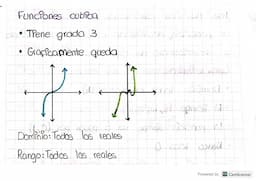 Funciones cubica
• Tiene grado 3
• Graficamente queda
Dominio: Todos los reales
Rango: Todos los reales
Powered by CamScanner